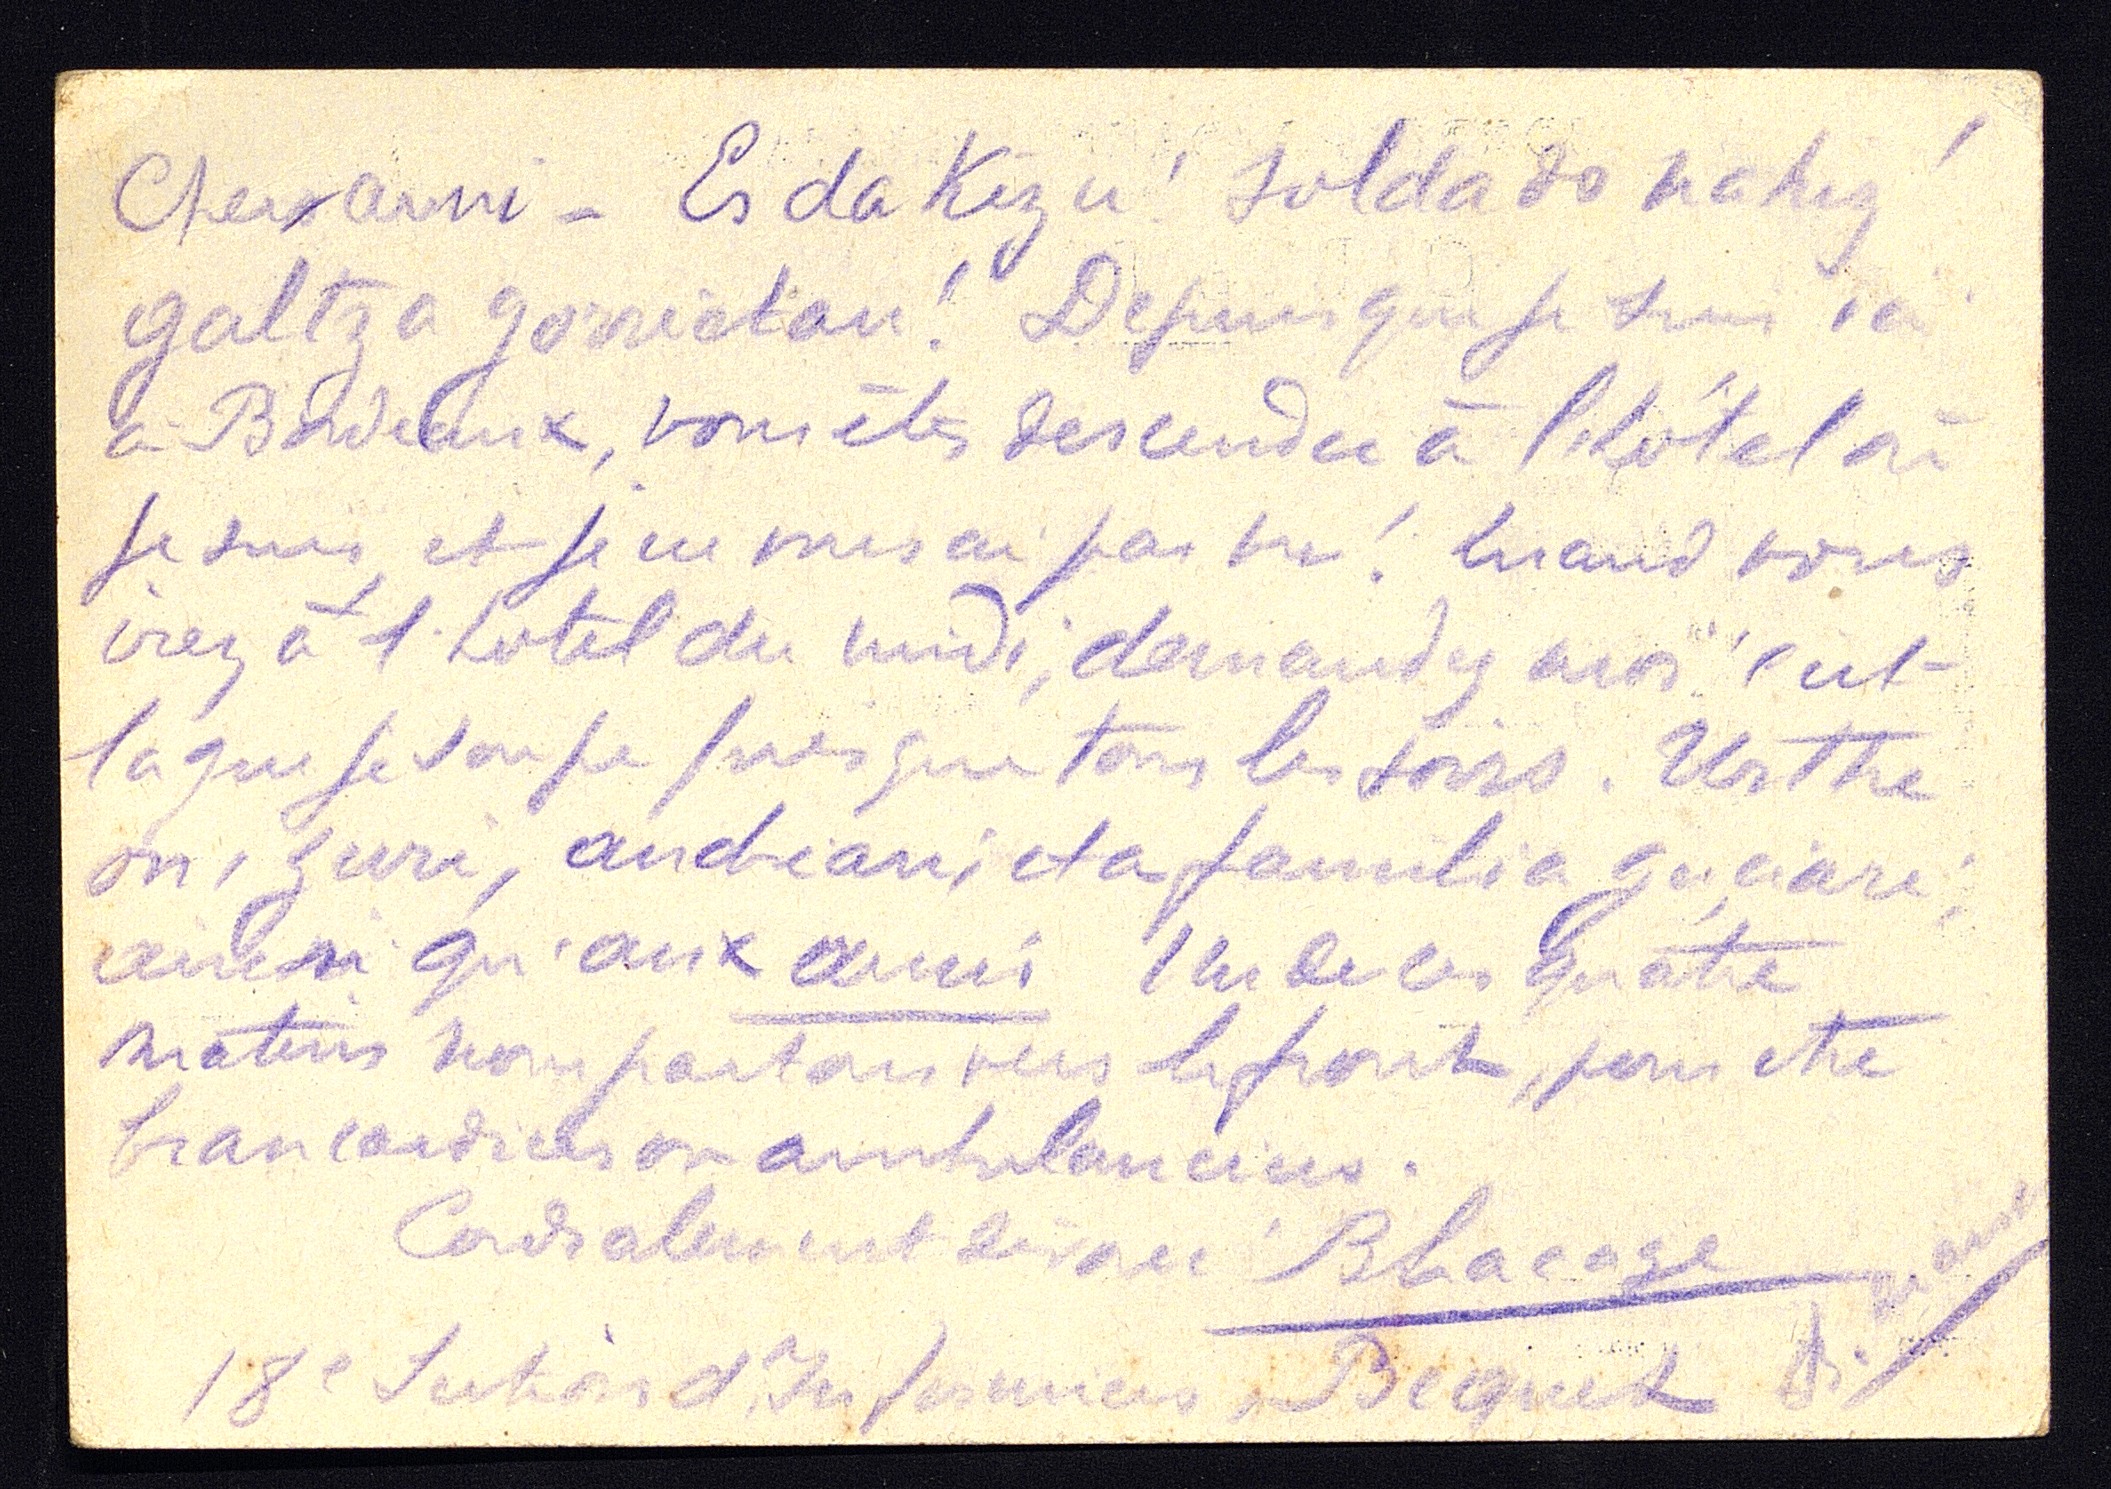 Cher ami - Es dakizu! Soldado nahiz!
galtza gorriekan! Depuis que je suis ici
à Bordeaux, vous êtes descendu à l'hôtel où
je suis, et je ne vous ai pas vu! Quand vous
irez à l'hotel du midi, demandez moi c'est
la que je soupe presque tous les soirs. Urthe
on, zuri, andreari, eta familia guciari,
ainsi qu'aux amis Un de ces quatre
matins nous partons vers le front, pour etre
brancardiers ou ambulanciers.
Cordialement B Lacaze
18e Section d'Infirmiers, Béquet